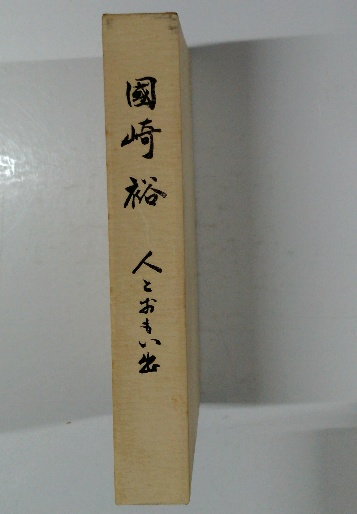 國崎裕
人とおもい出